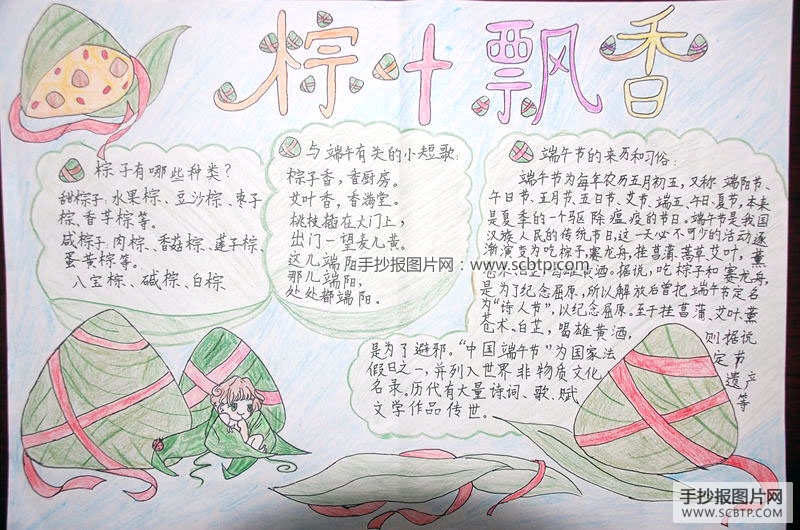 棕叶飘香
粽子有哪些种类?
甜粽子:水果粽、豆沙粽、枣子
粽、香芋粽等。
咸粽子:肉粽、香菇粽、莲子粽、
蛋黄粽等。
八宝粽、碱粽、白粽
与端午有关的小短歌:
粽子香,香厨房。
艾叶香,香满堂。
桃枝插在大门上,
出门一望麦儿黄。
这儿端阳,
那儿端阳,
处处都端阳。
端午节的来历和习俗:
端午节为每年农历五月初五,又称端阳节、
午日节、五月节、五日节、艾节、端五、午日、夏节,本来
是夏季的一个驱除瘟疫的节日。端午节是我国
汉族人民的传统节日,这一天必不可少的活动逐
渐演变为吃粽子,赛龙舟,挂菖蒲、蒿草、艾叶,薰
苍术、白芷,喝雄黄酒。据说,吃粽子和赛龙舟,
是为了纪念屈原,所以解放后曾把端午节定名
为“诗人节”,以纪念屈原。至于挂菖蒲、艾叶、薰
苍术、白芷,喝雄黄酒,则据说
是为了避邪。“中国端午节”为国家法定节
假日之一,并列入世界非物质文化遗产
名录。历代有大量诗词、歌、赋等
文学作品传世。
手抄报图片网:www.scbtp.com
手抄报图片网
WWW.SCBTP.COM